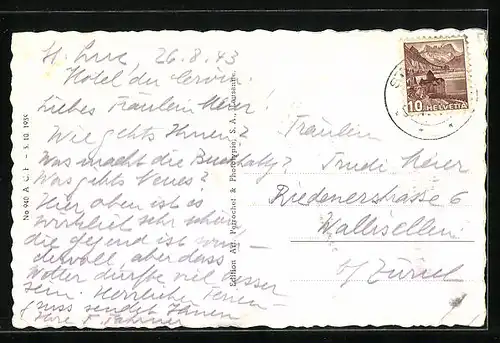 St. Luc, 26.8.43
Hotel du Cervin.
Liebes Fräulein Meier!
Wie gehts Ihnen?
Was macht die
Was gehts Neues?
Hier oben ist es
wirklich sehr schön,
die Gegend ist wun-
dervoll, aber dass
Wetter dürfte viel besser
sein. Herrlichen Ferien-
Gruss sendet Ihnen
Ihre F.
No 940 A
5. 10. 1935
Edition Art. Perrochet & Phototypie, S. A., Lausanne.
10 HELVETIA
Fräulein
Trudi Meier
Riedenerstrasse 6
Wallisellen
b/ Zürich